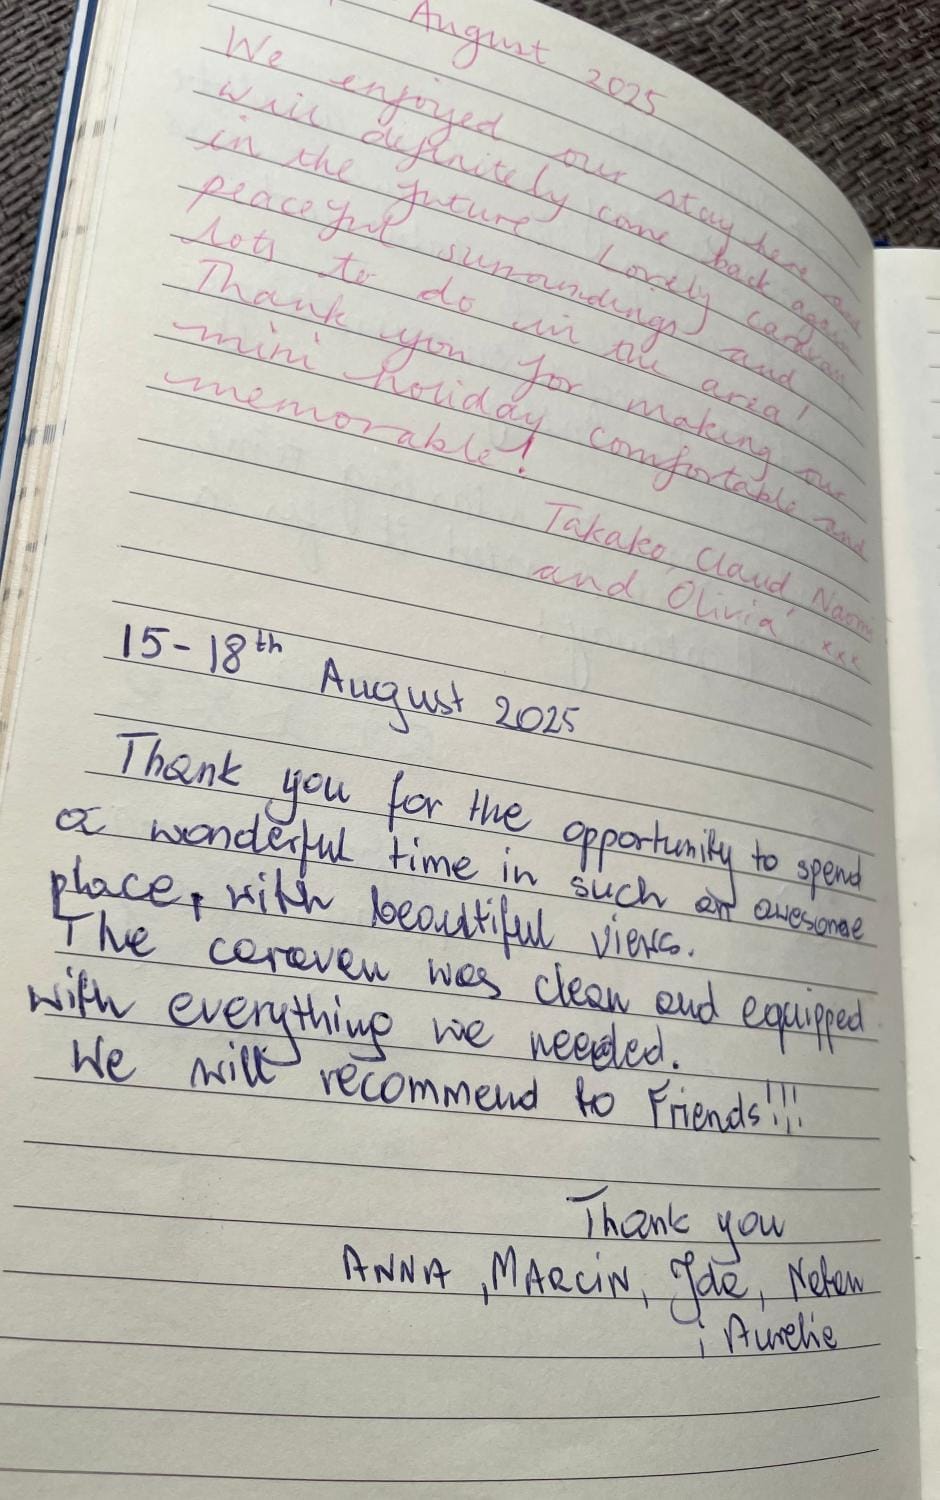 August 2025
We enjoyed our stay here and
will definitely come back again
in the future. Lovely caravan,
peaceful surroundings and
lots to do in the area!
Thank you for making our
mini holiday comfortable and
memorable!
Takako, Claud, Naomi
and Olivia xxx
15-18th August 2025
Thank you for the opportunity to spend
a wonderful time in such an awesome
place, with beautiful views.
The caravan was clean and equipped
with everything we needed.
We will recommend to Friends!!!
Thank you
ANNA, MARCIN, Ida, Natan
i Aurelia